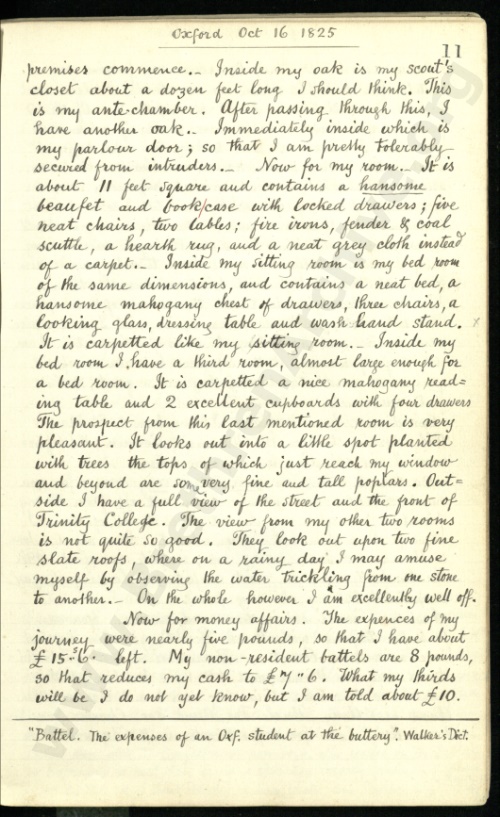 Oxford Oct 16 1825
11
premises commence.- Inside my oak is my scout's
closet about a dozen feet long I should think. This
is my ante-chamber. After passing through this, I
have another oak.- Immediately inside which is
my parlour door; so that I am pretty tolerably
secured from intruders.- Now for my room.- It is
about 11 feet square and contains a hansome
beaufet and book/case with locked drawers; five
neat chairs, two tables; fire irons, fender & coal
scuttle, a hearth rug, and a neat grey cloth instead
of a carpet.- Inside my sitting room is my bed room
of the same dimensions, and contains a neat bed, a
hansome mahogany chest of drawers, three chairs, a
looking glass, dressing table and wash hand stand.
It is carpetted like my sitting room.- Inside my
bed room I have a third room, almost large enough for
a bed room. It is carpetted a nice mahogany read=
ing table and 2 excellent cupboards with four drawers
The prospect from this last mentioned room is very
pleasant. It looks out into a little spot planted
with trees the tops of which just reach my window
and beyond are some very fine and tall poplars. Out=
side I have a full view of the street and the front of
Trinity College. The view from my other two rooms
is not quite so good. They look out upon two fine
slate roofs, where on a rainy day I may amuse
myself by observing the water trickling from one stone
to another.- On the whole however I am excellently well off.
Now for money affairs. The expences of my
journey were nearly five pounds, so that I have about
£15-s6. left. My non-resident battels are 8 pounds,
so that reduces my cash to £7"6. What my thirds
will be I do not yet know, but I am told about £10.
"Battel. The expenses of an Oxf. student at the buttery". Walker's Dict.